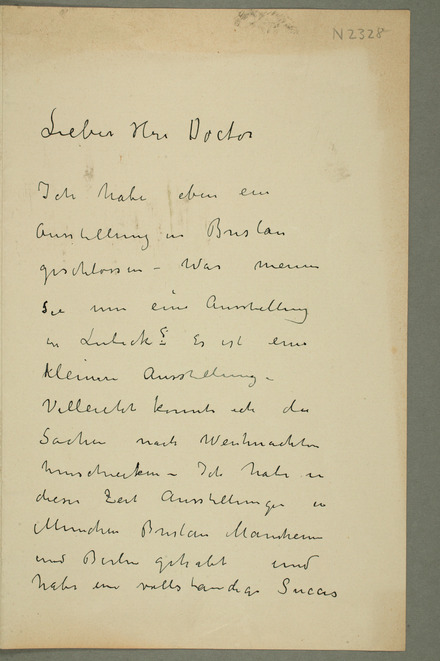 N2328
Lieber Herr Doctor
Ich habe eben ein
Ausstellung in Breslau
geschlossen – Was meinen
Sie um eine Ausstellung
in Lubeck? Es ist eine
kleinere Ausstellung –
Velleicht konnte ich die
Sachen nach Weihnachten
hinschicken – Ich habe in
dieser Zeit Ausstellungen in
München Breslau Manheim
und Berlin gehabt und
habe ein vollstandige Succes